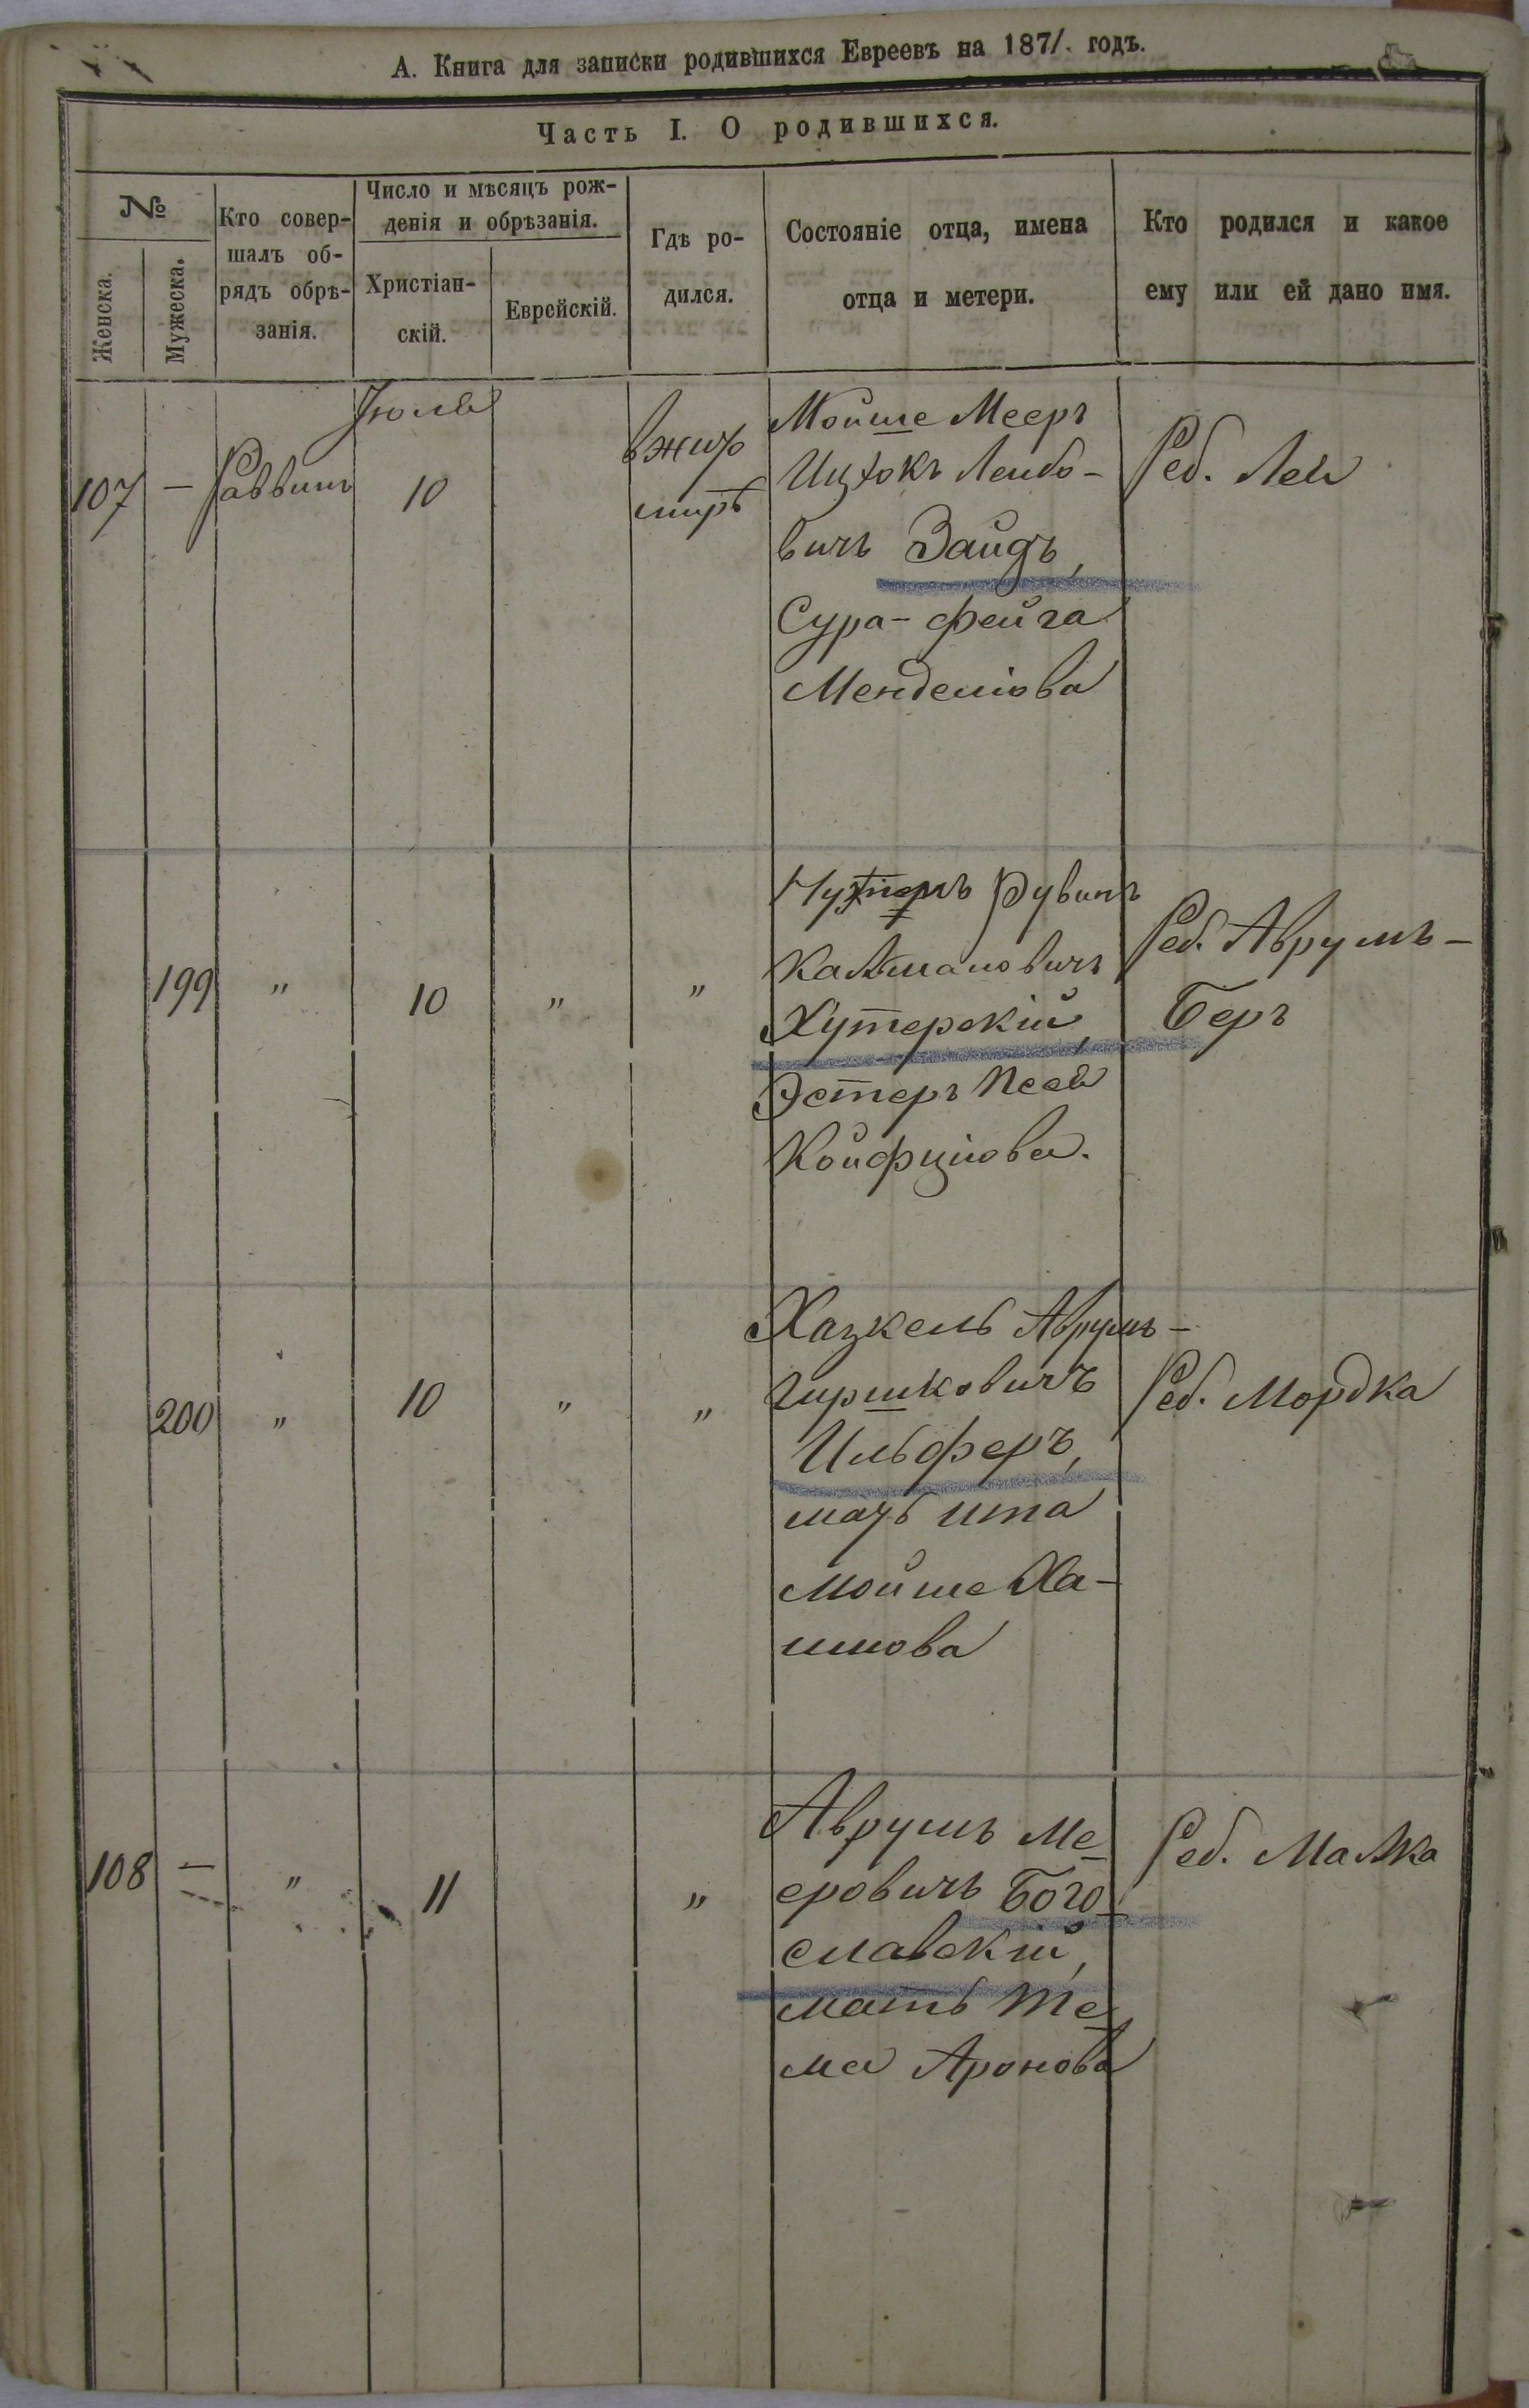 А. Книга для записки родившихся Евреевъ на 1871. годъ.
Часть I. О родившихся.
№
Женска.
Мужеска.
Кто совер-
шалъ об-
рядъ обрѣ-
занія.
Число и мѣсяцъ рож-
денія и обрѣзанія.
Христіан-
скій.
Еврейскій.
Гдѣ ро-
дился.
Состояніе отца, имена
отца и метери.
Кто родился и какое
ему или ей дано имя.
Іюль
107 — Раввинъ 10
въ Жито
мирѣ
Мойше Мееръ
Ицхокъ Лейбо-
вичъ Зайдъ,
Сура-Фейга
Менделіова
Реб. Лея
199 " 10 " "
Рувинъ
Калмановичъ
Хутерскій,
Эстеръ Песя
Реб. Аврумъ-
Беръ
200 " 10 " "
Хазкель Аврумъ-
Гиршковичъ
Ильферъ,
мать Ита
Мойше Ха-
имова
Реб. Мордка
108 — " 11 "
Аврумъ Ме-
еровичъ Бого-
славскій,
мать Те-
ма Аронова
Реб. Малка